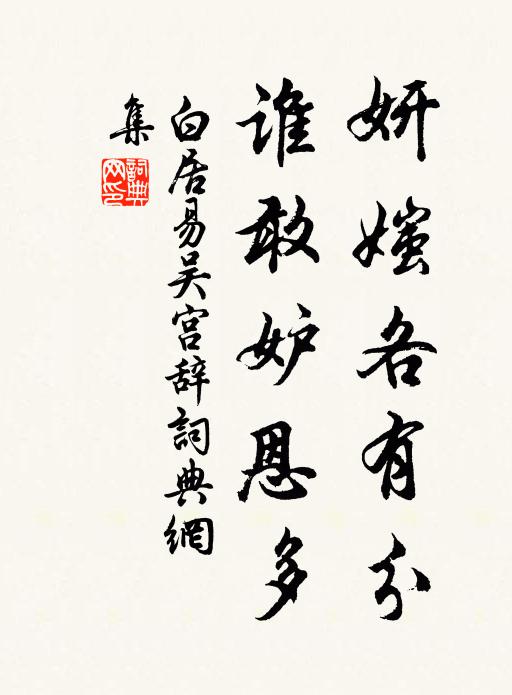 妍媸各有分
谁敢妒恩多
白居易吴宫辞詞典網
集
詞典网印